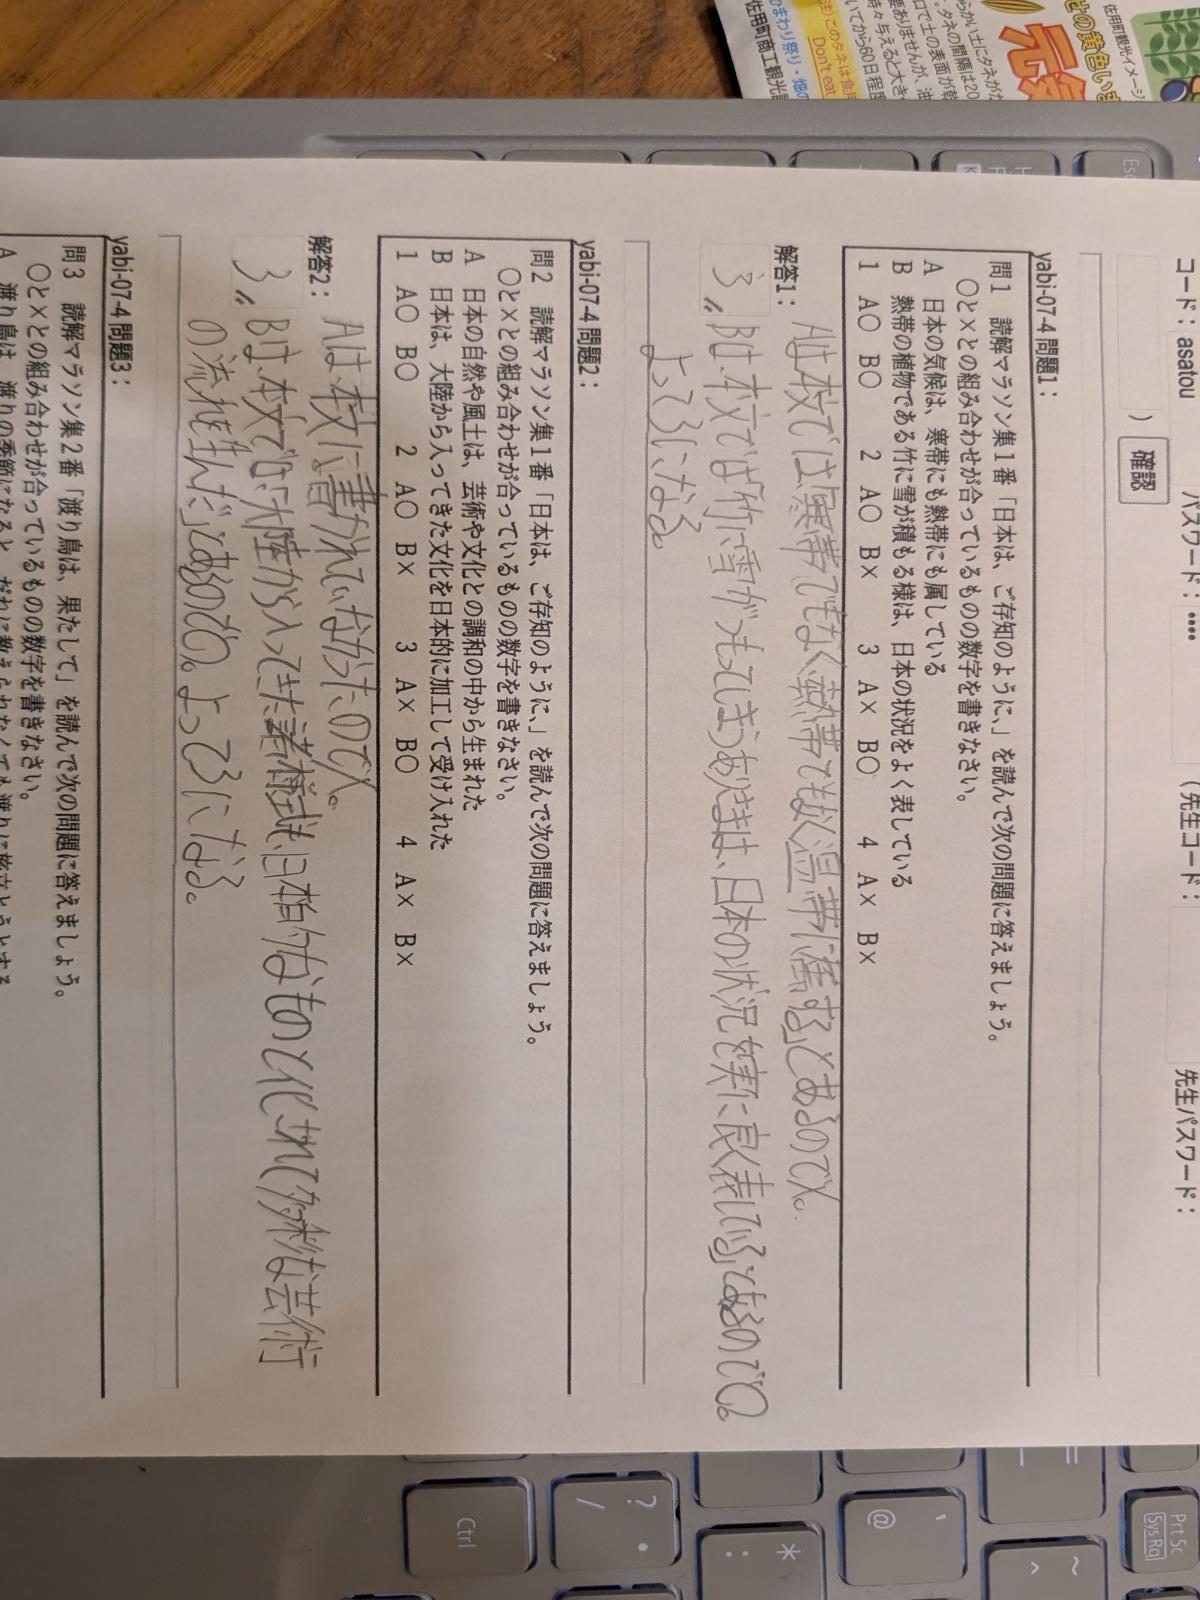 コード： asatou パスワード： •••• (先生コード： 先生パスワード：
) 確認
yabi-07-4 問題1：
問1 読解マラソン集1番「日本は、ご存知のように、」を読んで次の問題に答えましょう。
○と×との組み合わせが合っているものの数字を書きなさい。
A 日本の気候は、寒帯にも熱帯にも属している
B 熱帯の植物である竹に雪が積もる様は、日本の状況をよく表している
1 A○ B○ 2 A○ B× 3 A× B○ 4 A× B×
解答1：
Aは本文では「寒帯でもなく熱帯でもなく温帯に属する」とあるので×。
3 〃 Bは、本文では「竹に雪がつもってしまうありさまは、日本の状況を実に良く表している」とあるので○。
よって3になる
yabi-07-4 問題2：
問2 読解マラソン集1番「日本は、ご存知のように、」を読んで次の問題に答えましょう。
○と×との組み合わせが合っているものの数字を書きなさい。
A 日本の自然や風土は、芸術や文化との調和の中から生まれた
B 日本は、大陸から入ってきた文化を日本的に加工して受け入れた
1 A○ B○ 2 A○ B× 3 A× B○ 4 A× B×
解答2：
Aは本文に書かれていなかったので×。
3 〃 Bは、本文で「大陸から入ってきた諸様式も、日本的なものと化されて多彩な芸術
の流れを生んだ」とあるので○。よって3になる。
yabi-07-4 問題3：
問3 読解マラソン集2番「渡り鳥は、果たして」を読んで次の問題に答えましょう。
○と×との組み合わせが合っているものの数字を書きなさい。
A 渡り鳥は、渡りの季節になると、だれに教えられなくても渡りに旅立とうとする
佐用町観光イメージ
Don't eat
佐用町商工観光
Esc
Prt Sc
Sys Rq
Ctrl
? /
* :
@
~ ^